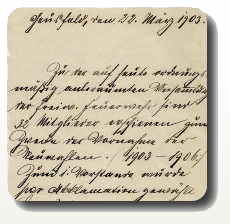 Geusfeld, den 22. März 1903.
Zu der auf heute ordnungs-
mäßig anberaumten Versammlung
der freiw. Feuerwehr sind
32 Mitglieder erschienen zum
Zwecke der Vornahme der
Neuwahlen. / 1903 – 1906/
Zum I. Vorstande wurde
per Akklamation gewählt